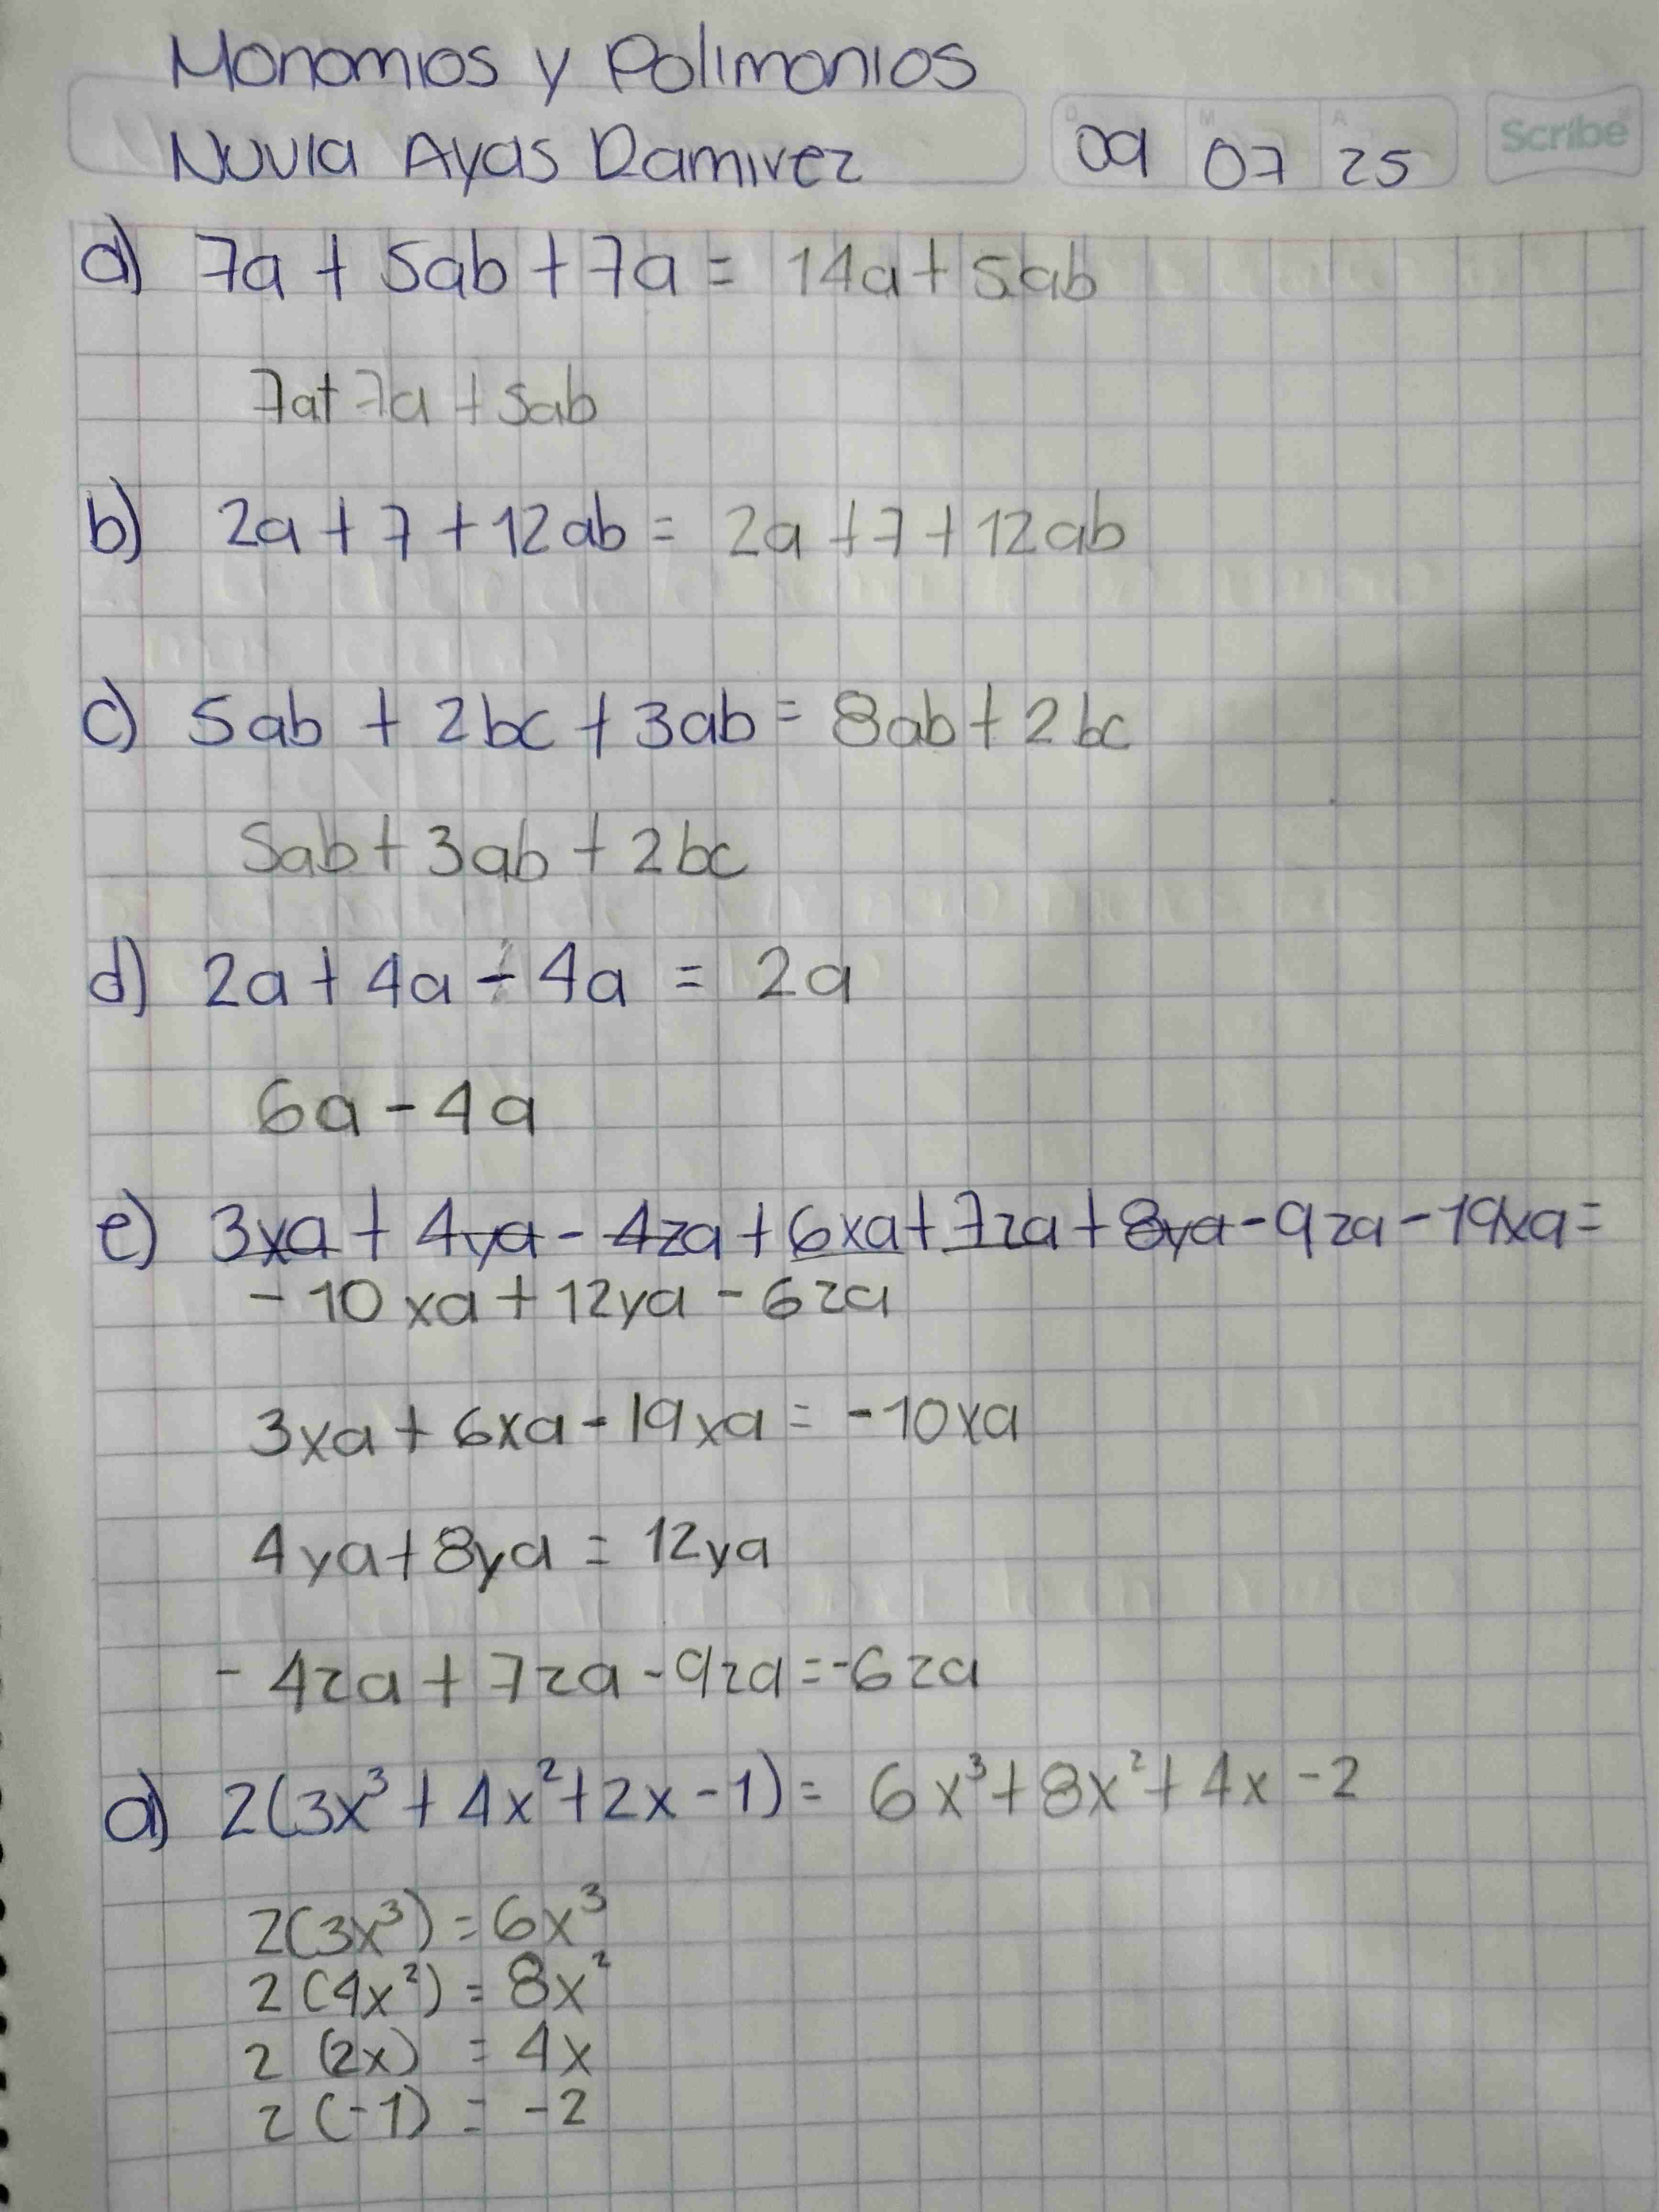 Monomios y Polimonios
Nuvia Ayas Ramirez 09 07 25 Scribe
D M A
a) 7a + 5ab + 7a = 14a + 5ab
7a + 7a + 5ab
b) 2a + 7 + 12ab = 2a + 7 + 12ab
c) 5ab + 2bc + 3ab = 8ab + 2bc
5ab + 3ab + 2bc
d) 2a + 4a - 4a = 2a
6a - 4a
e) 3xa + 4ya - 4za + 6xa + 7za + 8ya - 9za - 19xa =
- 10xa + 12ya - 6za
3xa + 6xa - 19xa = -10xa
4ya + 8ya = 12ya
- 4za + 7za - 9za = -6za
a) 2(3x³ + 4x² + 2x - 1) = 6x³ + 8x² + 4x - 2
2(3x³) = 6x³
2(4x²) = 8x²
2 (2x) = 4x
2 (-1) = -2